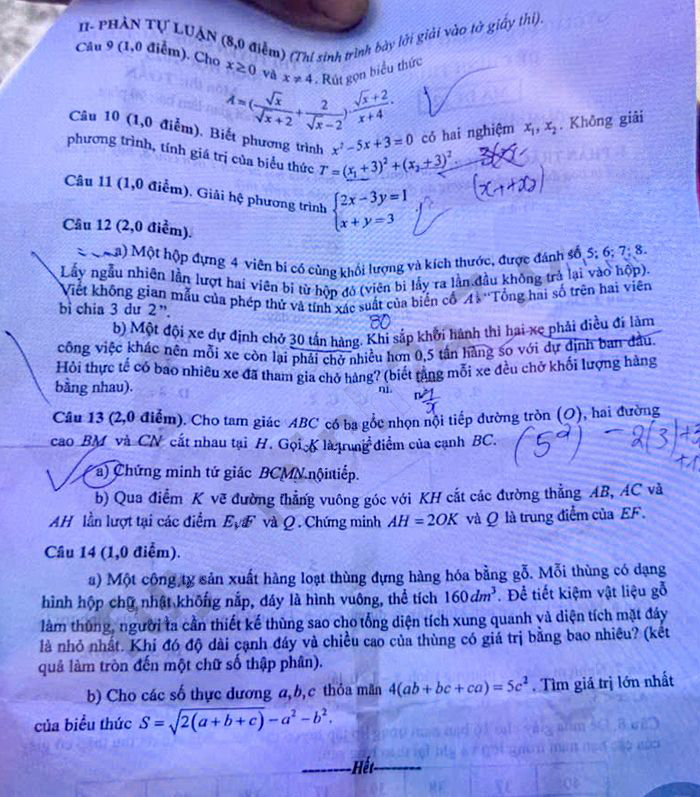 II- PHẦN TỰ LUẬN (8,0 điểm) (Thí sinh trình bày lời giải vào tờ giấy thi).
Câu 9 (1,0 điểm). Cho x ≥ 0 và x ≠ 4. Rút gọn biểu thức
A = (√x/(√x+2) + 2/(√x−2)) · (√x+2)/(x+4).
Câu 10 (1,0 điểm). Biết phương trình x² − 5x + 3 = 0 có hai nghiệm x₁, x₂. Không giải
phương trình, tính giá trị của biểu thức T = (x₁ + 3)² + (x₂ + 3)².
(x₁+x₂)
Câu 11 (1,0 điểm). Giải hệ phương trình { 2x − 3y = 1
x + y = 3
Câu 12 (2,0 điểm).
a) Một hộp đựng 4 viên bi có cùng khối lượng và kích thước, được đánh số 5; 6; 7; 8.
Lấy ngẫu nhiên lần lượt hai viên bi từ hộp đó (viên bi lấy ra lần đầu không trả lại vào hộp).
Viết không gian mẫu của phép thử và tính xác suất của biến cố A: “Tổng hai số trên hai viên
bi chia 3 dư 2”.
80
b) Một đội xe dự định chở 30 tấn hàng. Khi sắp khởi hành thì hai xe phải điều đi làm
công việc khác nên mỗi xe còn lại phải chở nhiều hơn 0,5 tấn hàng so với dự định ban đầu.
Hỏi thực tế có bao nhiêu xe đã tham gia chở hàng? (biết rằng mỗi xe đều chở khối lượng hàng
bằng nhau).
Câu 13 (2,0 điểm). Cho tam giác ABC có ba góc nhọn nội tiếp đường tròn (O), hai đường
cao BM và CN cắt nhau tại H. Gọi K là trung điểm của cạnh BC.
a) Chứng minh tứ giác BCMN nội tiếp.
b) Qua điểm K vẽ đường thẳng vuông góc với KH cắt các đường thẳng AB, AC và
AH lần lượt tại các điểm E, F và Q. Chứng minh AH = 2OK và Q là trung điểm của EF.
Câu 14 (1,0 điểm).
a) Một công ty sản xuất hàng loạt thùng đựng hàng hóa bằng gỗ. Mỗi thùng có dạng
hình hộp chữ nhật không nắp, đáy là hình vuông, thể tích 160 dm³. Để tiết kiệm vật liệu gỗ
làm thùng, người ta cần thiết kế thùng sao cho tổng diện tích xung quanh và diện tích mặt đáy
là nhỏ nhất. Khi đó độ dài cạnh đáy và chiều cao của thùng có giá trị bằng bao nhiêu? (kết
quả làm tròn đến một chữ số thập phân).
b) Cho các số thực dương a, b, c thỏa mãn 4(ab + bc + ca) = 5c². Tìm giá trị lớn nhất
của biểu thức S = √(2(a + b + c)) − a² − b².
---------Hết---------